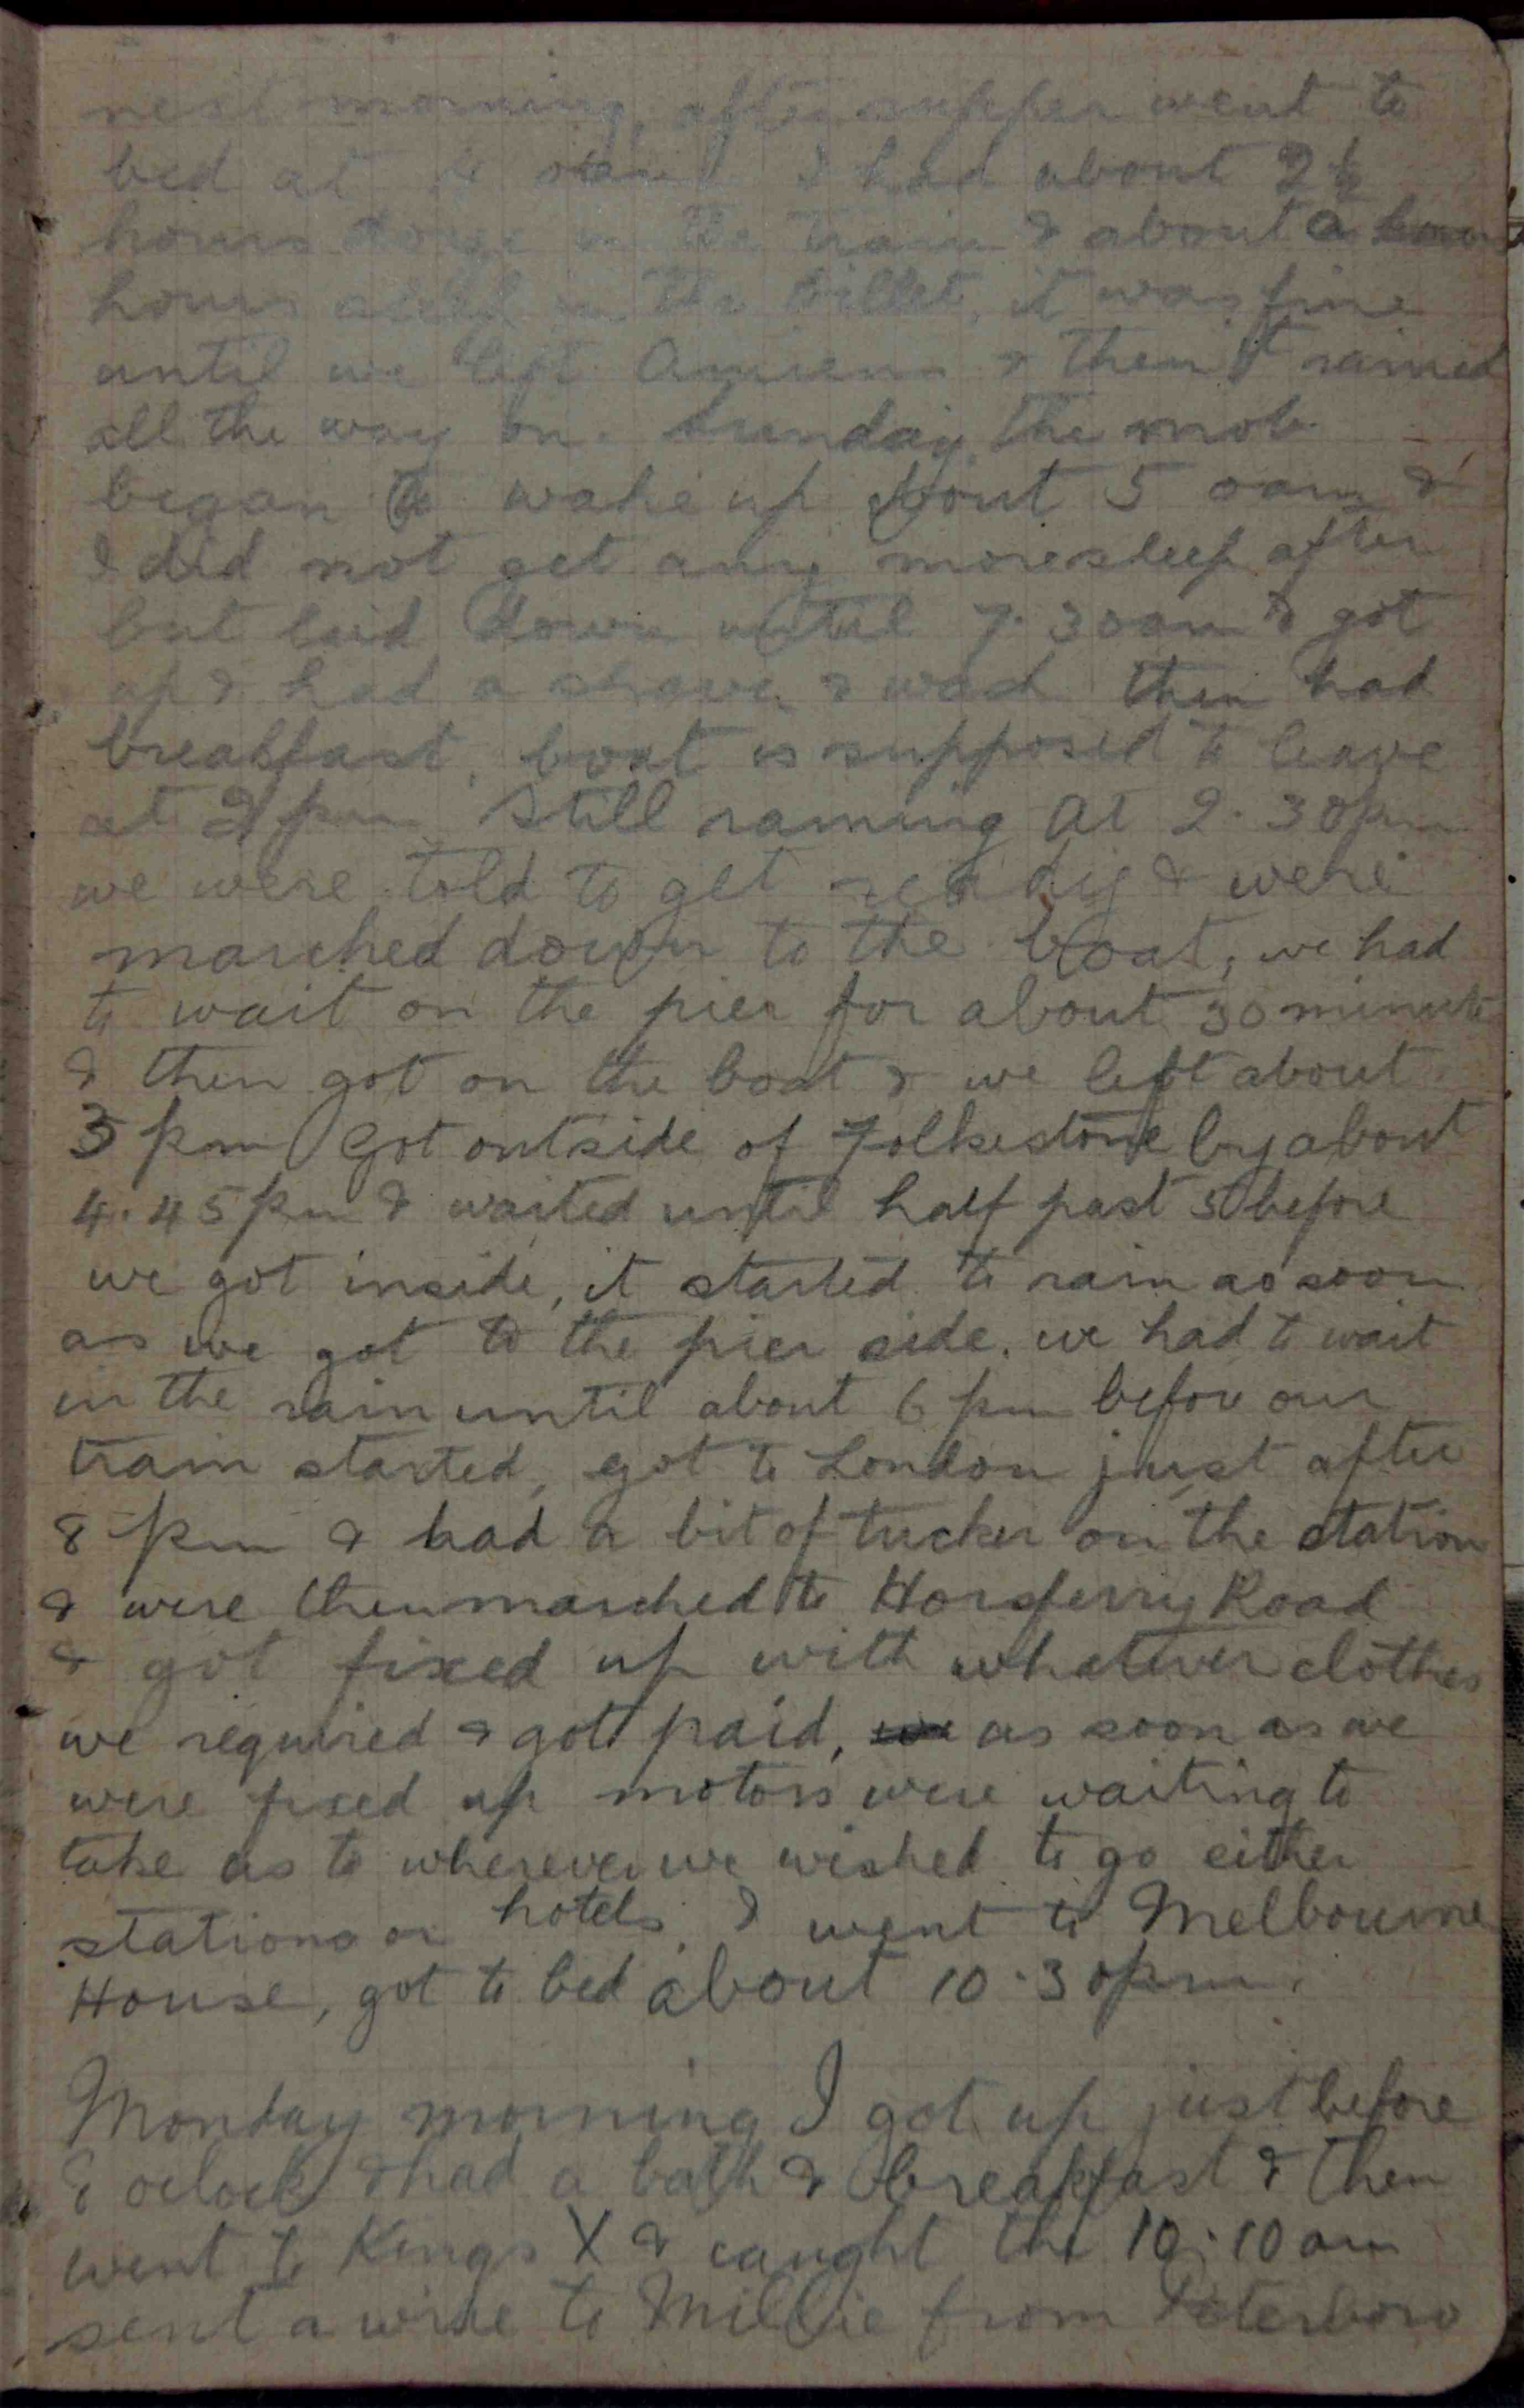 next morning, after supper went to
bed at 2 oam I had about 2½
hours doze in the train & about a
hours in the billet, it was fine
until we left Amiens & then it rained
all the way on. Sunday the mob
began to wake up about 5 oam &
I did not get any more sleep after
but laid down until 7.30am & got
up & had a shave & wash then had
breakfast, boat is supposed to leave
at pm Still raining at 2.30pm
we were told to get ready & were
marched down to the boat, we had
to wait on the pier for about 30 minute
& then got on the boat & we left about
3 pm Got outside of Folkestone by about
4.45pm & waited until half past 5 before
we got inside, it started to rain as soon
as we got to the pier side. we had to wait
in the rain until about 6 pm befor our
train started, got to London just after
8 pm & had a bit of tucker on the station
& were then marched to Horsferry Road
& got fixed up with whatever clothes
we required & got paid, as soon as we
were fixed up motors were waiting to
take us to wherever we wished to go either
stations or hotels, I went to Melbourne
House, got to bed about 10.30pm.
Monday morning I got up just before
8 oclock & had a bath & breakfast & then
went to Kings X & caught the 10.10am
sent a wire to Millie from Peterboro